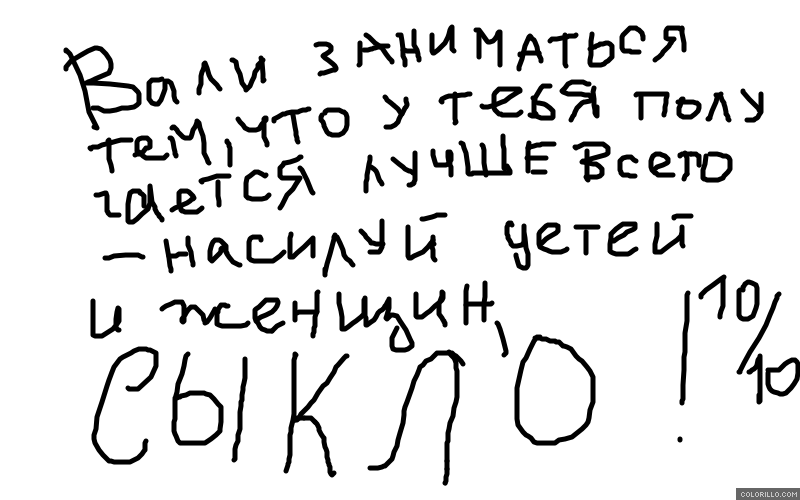 Вали заниматься
тем, что у тебя полу
чается лучше всего
- насилуй детей
и женщин,
сыкло! 10/10
COLORILLO.COM